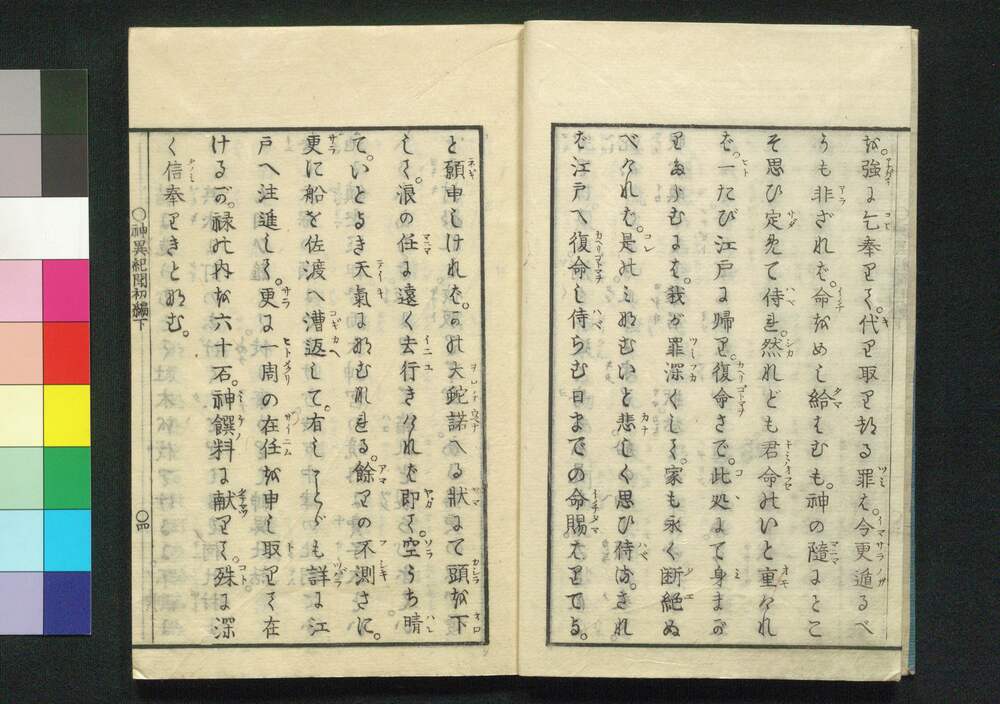 を。強に乞奉りて。代り取り却る罪は。今更遁るべ
うも非ざれば。命をめし給はむも。神の隨にとこ
そ思ひ定めて侍れ。然れども君命のいと重けれ
ば。一たび江戸に歸り。復命さで。此処にて身まか
りなむには。我が罪深くして。家も永く断絶ぬ
べければ。是のみなむいと悲しく思ひ侍る。され
ば江戸へ復命し侍らむ日までの命賜はりてよ。
と願申しければ。かの大蛇諾へる狀にて頭を下
して。浪の任に遠く去行きければ即て。空うち晴
て。いとよき天氣になむなれりける。餘りの不測さに。
更に船を佐渡へ漕返して。有しことゞも詳に江
戸へ注進して。更に一周の在任を申し取りて在
けるが。禄の内を六十石。神饌料に献りて。殊に深
く信奉りきとなむ。
○神異紀聞初編下
○四